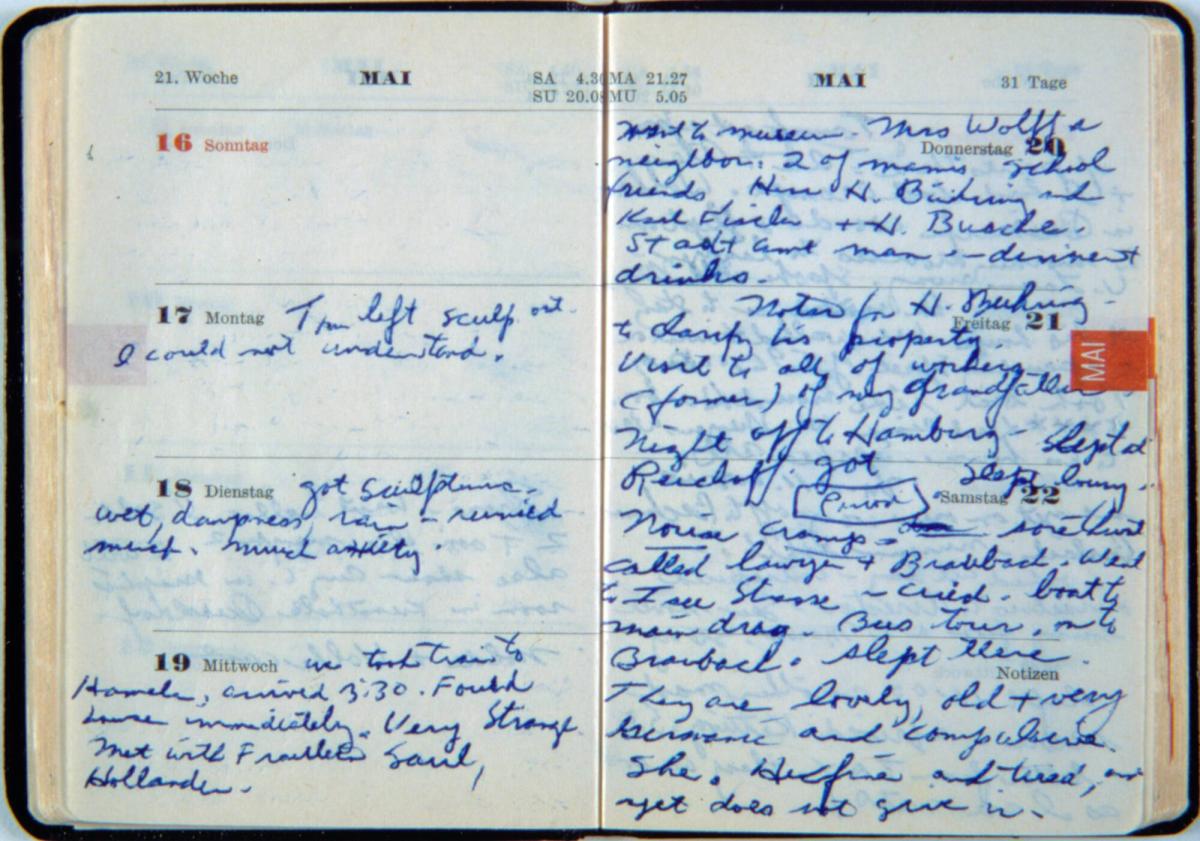 21. Woche MAI SA 4.30 MA 21.27
SU 20.08 MU 5.05
16 Sonntag
17 Montag Tom left sculp. out.
I could not understand.
18 Dienstag got sculpture.
wet, dampness, rain - ruined
much. Much anxiety.
19 Mittwoch we took train to
Hameln, arrived 3:30. Found
house immediately. Very Strange.
Met with Fraulein Saul,
Hollander.
MAI 31 Tage
visit to museum. Mrs Wolff a
Donnerstag 20
neighbor. 2 of mamis school
friends Herr H. and
Karl + H. Busche.
Stadt amt man - dinner +
drinks.
Notar for H.
Freitag 21
to clarify his property.
Visit to all of workers
(former) of my grandfather
MAI
Night off to Hamburg - slept at
Reichof. got slept lousy.
Samstag 22
Nouse cramps - sore throat
called lawyer + Brabbach. Went
to Isee Strasse - cried. boat to
main drag. Bus tour, on to
Braibach. slept there.
Notizen
They are lovely, old + very
Germanic and compulsive.
She. and tired, and
yet does not give in.